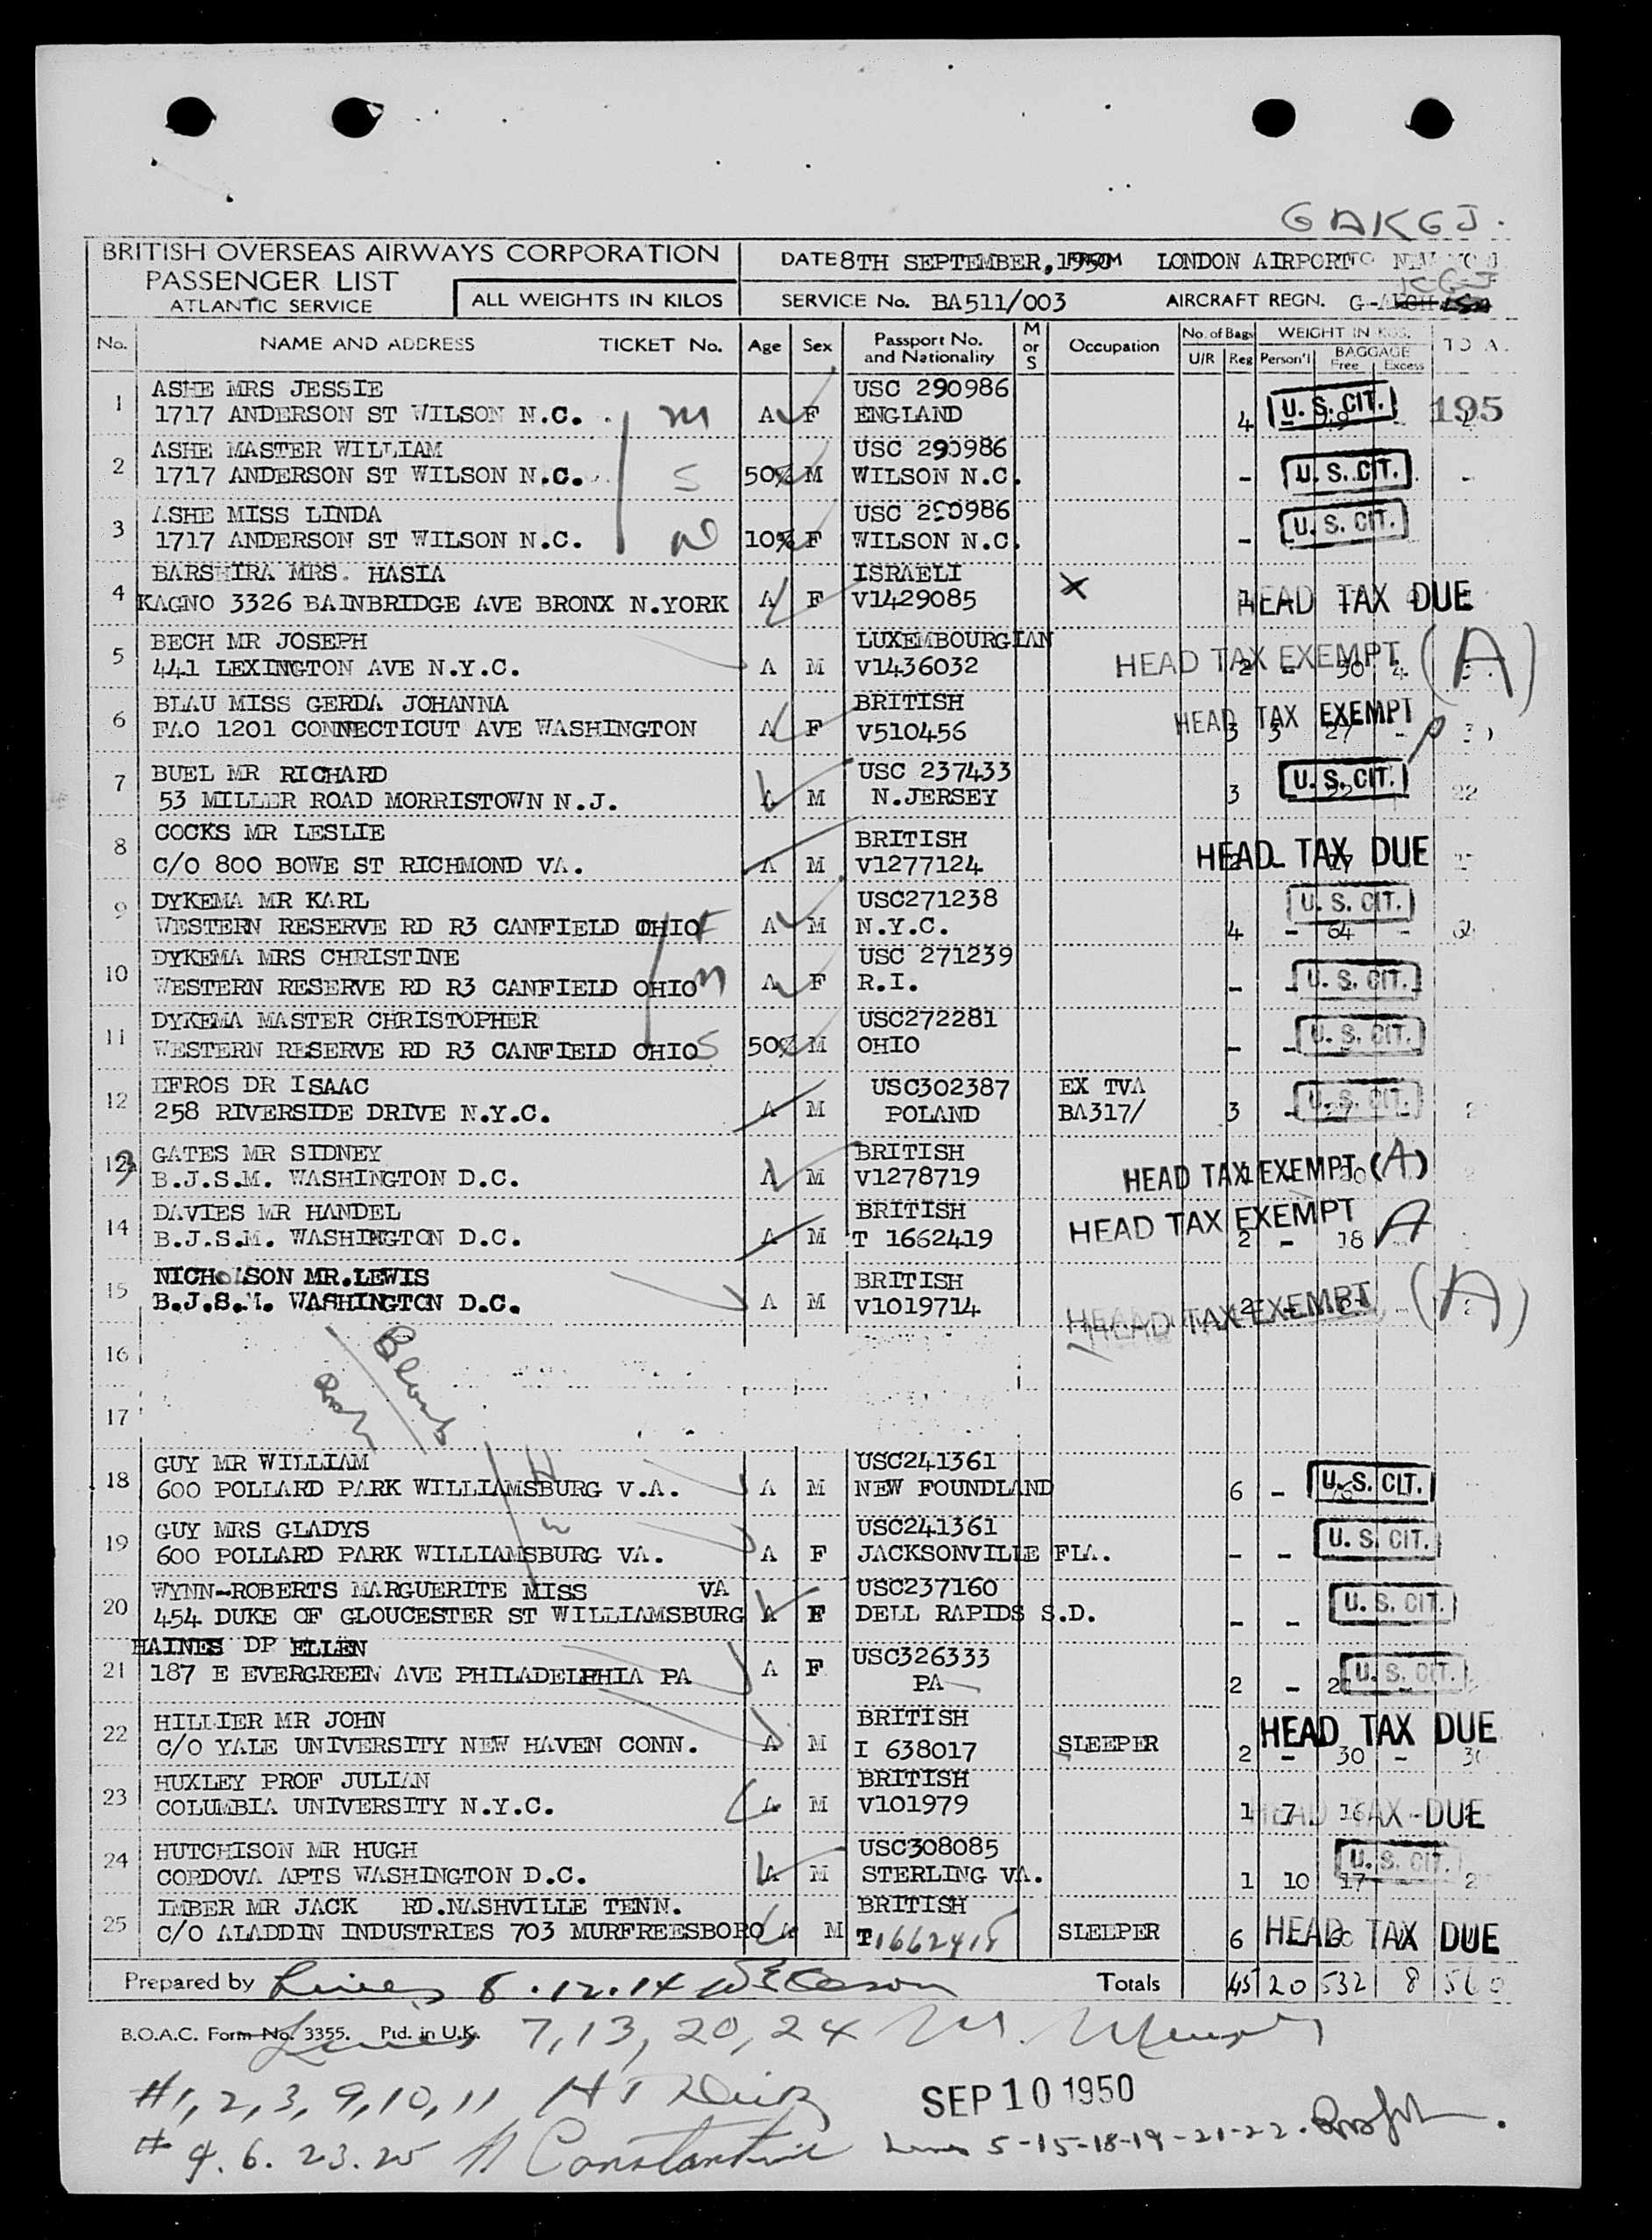 GAKGJ.
BRITISH OVERSEAS AIRWAYS CORPORATION
PASSENGER LIST
ATLANTIC SERVICE
ALL WEIGHTS IN KILOS
DATE 8TH SEPTEMBER, 1950 FROM LONDON AIRPORT TO NEW YORK
SERVICE No. BA511/003 AIRCRAFT REGN. G-A KGJ
No. NAME AND ADDRESS TICKET No. Age Sex Passport No. and Nationality M or S Occupation No. of Bags U/R Reg WEIGHT IN KGS. Person'l BAGGAGE Free Excess
195
1 ASHE MRS JESSIE USC 290986
1717 ANDERSON ST WILSON N.C. m A F ENGLAND 4 U. S. CIT.
2 ASHE MASTER WILLIAM USC 290986
1717 ANDERSON ST WILSON N.C. S 50% M WILSON N.C. - U. S. CIT. -
3 ASHE MISS LINDA USC 290986
1717 ANDERSON ST WILSON N.C. 10% F WILSON N.C. - U. S. CIT.
4 BARSHIRA MRS. HASIA ISRAELI X
KAGNO 3326 BAINBRIDGE AVE BRONX N.YORK A F V1429085 HEAD TAX DUE
5 BECH MR JOSEPH LUXEMBOURGIAN
441 LEXINGTON AVE N.Y.C. A M V1436032 2 - 30 4 HEAD TAX EXEMPT (A)
6 BLAU MISS GERDA JOHANNA BRITISH
FAO 1201 CONNECTICUT AVE WASHINGTON A F V510456 3 3 27 - HEAD TAX EXEMPT
7 BUEL MR RICHARD USC 237433
53 MILLER ROAD MORRISTOWN N.J. A M N.JERSEY 3 U. S. CIT. 22
8 COCKS MR LESLIE BRITISH
C/O 800 BOWE ST RICHMOND VA. A M V1277124 HEAD TAX DUE
9 DYKEMA MR KARL USC271238 U. S. CIT.
WESTERN RESERVE RD R3 CANFIELD OHIO F A M N.Y.C. 4 - 64 - 64
10 DYKEMA MRS CHRISTINE USC 271239
WESTERN RESERVE RD R3 CANFIELD OHIO m A F R.I. - U. S. CIT.
11 DYKEMA MASTER CHRISTOPHER USC272281
WESTERN RESERVE RD R3 CANFIELD OHIO S 50% M OHIO - - U. S. CIT.
12 EFROS DR ISAAC USC302387 EX TVA
258 RIVERSIDE DRIVE N.Y.C. A M POLAND BA317/ 3 - 27 U. S. CIT.
13 GATES MR SIDNEY BRITISH
B.J.S.M. WASHINGTON D.C. A M V1278719 HEAD TAX EXEMPT (A)
14 DAVIES MR HANDEL BRITISH
B.J.S.M. WASHINGTON D.C. A M T 1662419 2 - 18 HEAD TAX EXEMPT A
15 NICHOLSON MR.LEWIS BRITISH
B.J.S.M. WASHINGTON D.C. A M V1019714 2 HEAD TAX EXEMPT (A)
16
Blank
17
18 GUY MR WILLIAM USC241361
600 POLLARD PARK WILLIAMSBURG V.A. H A M NEW FOUNDLAND 6 - U. S. CIT.
19 GUY MRS GLADYS USC241361
600 POLLARD PARK WILLIAMSBURG VA. w A F JACKSONVILLE FLA. - - U. S. CIT.
20 WYNN-ROBERTS MARGUERITE MISS VA USC237160
454 DUKE OF GLOUCESTER ST WILLIAMSBURG A F DELL RAPIDS S.D. - - U. S. CIT.
21 HAINES DR ELLEN USC326333
187 E EVERGREEN AVE PHILADELPHIA PA A F PA 2 - U. S. CIT.
22 HILLIER MR JOHN BRITISH HEAD TAX DUE
C/O YALE UNIVERSITY NEW HAVEN CONN. A M I 638017 SLEEPER 2 - 30 - 30
23 HUXLEY PROF JULIAN BRITISH
COLUMBIA UNIVERSITY N.Y.C. A M V101979 1 7 16 HEAD TAX DUE
24 HUTCHISON MR HUGH USC308085
CORDOVA APTS WASHINGTON D.C. A M STERLING VA. 1 10 17 U. S. CIT.
25 IMBER MR JACK RD.NASHVILLE TENN. BRITISH
C/O ALADDIN INDUSTRIES 703 MURFREESBORO A M T1662418 SLEEPER 6 HEAD TAX DUE
Prepared by Lines 8.12.14 Totals 45 20 532 8 560
B.O.A.C. Form No. 3355. Ptd. in U.K.
Lines 7, 13, 20, 24
#1, 2, 3, 9, 10, 11
SEP 10 1950
# 4. 6. 23. 25 Constantine
Lines 5-15-18-19-21-22.